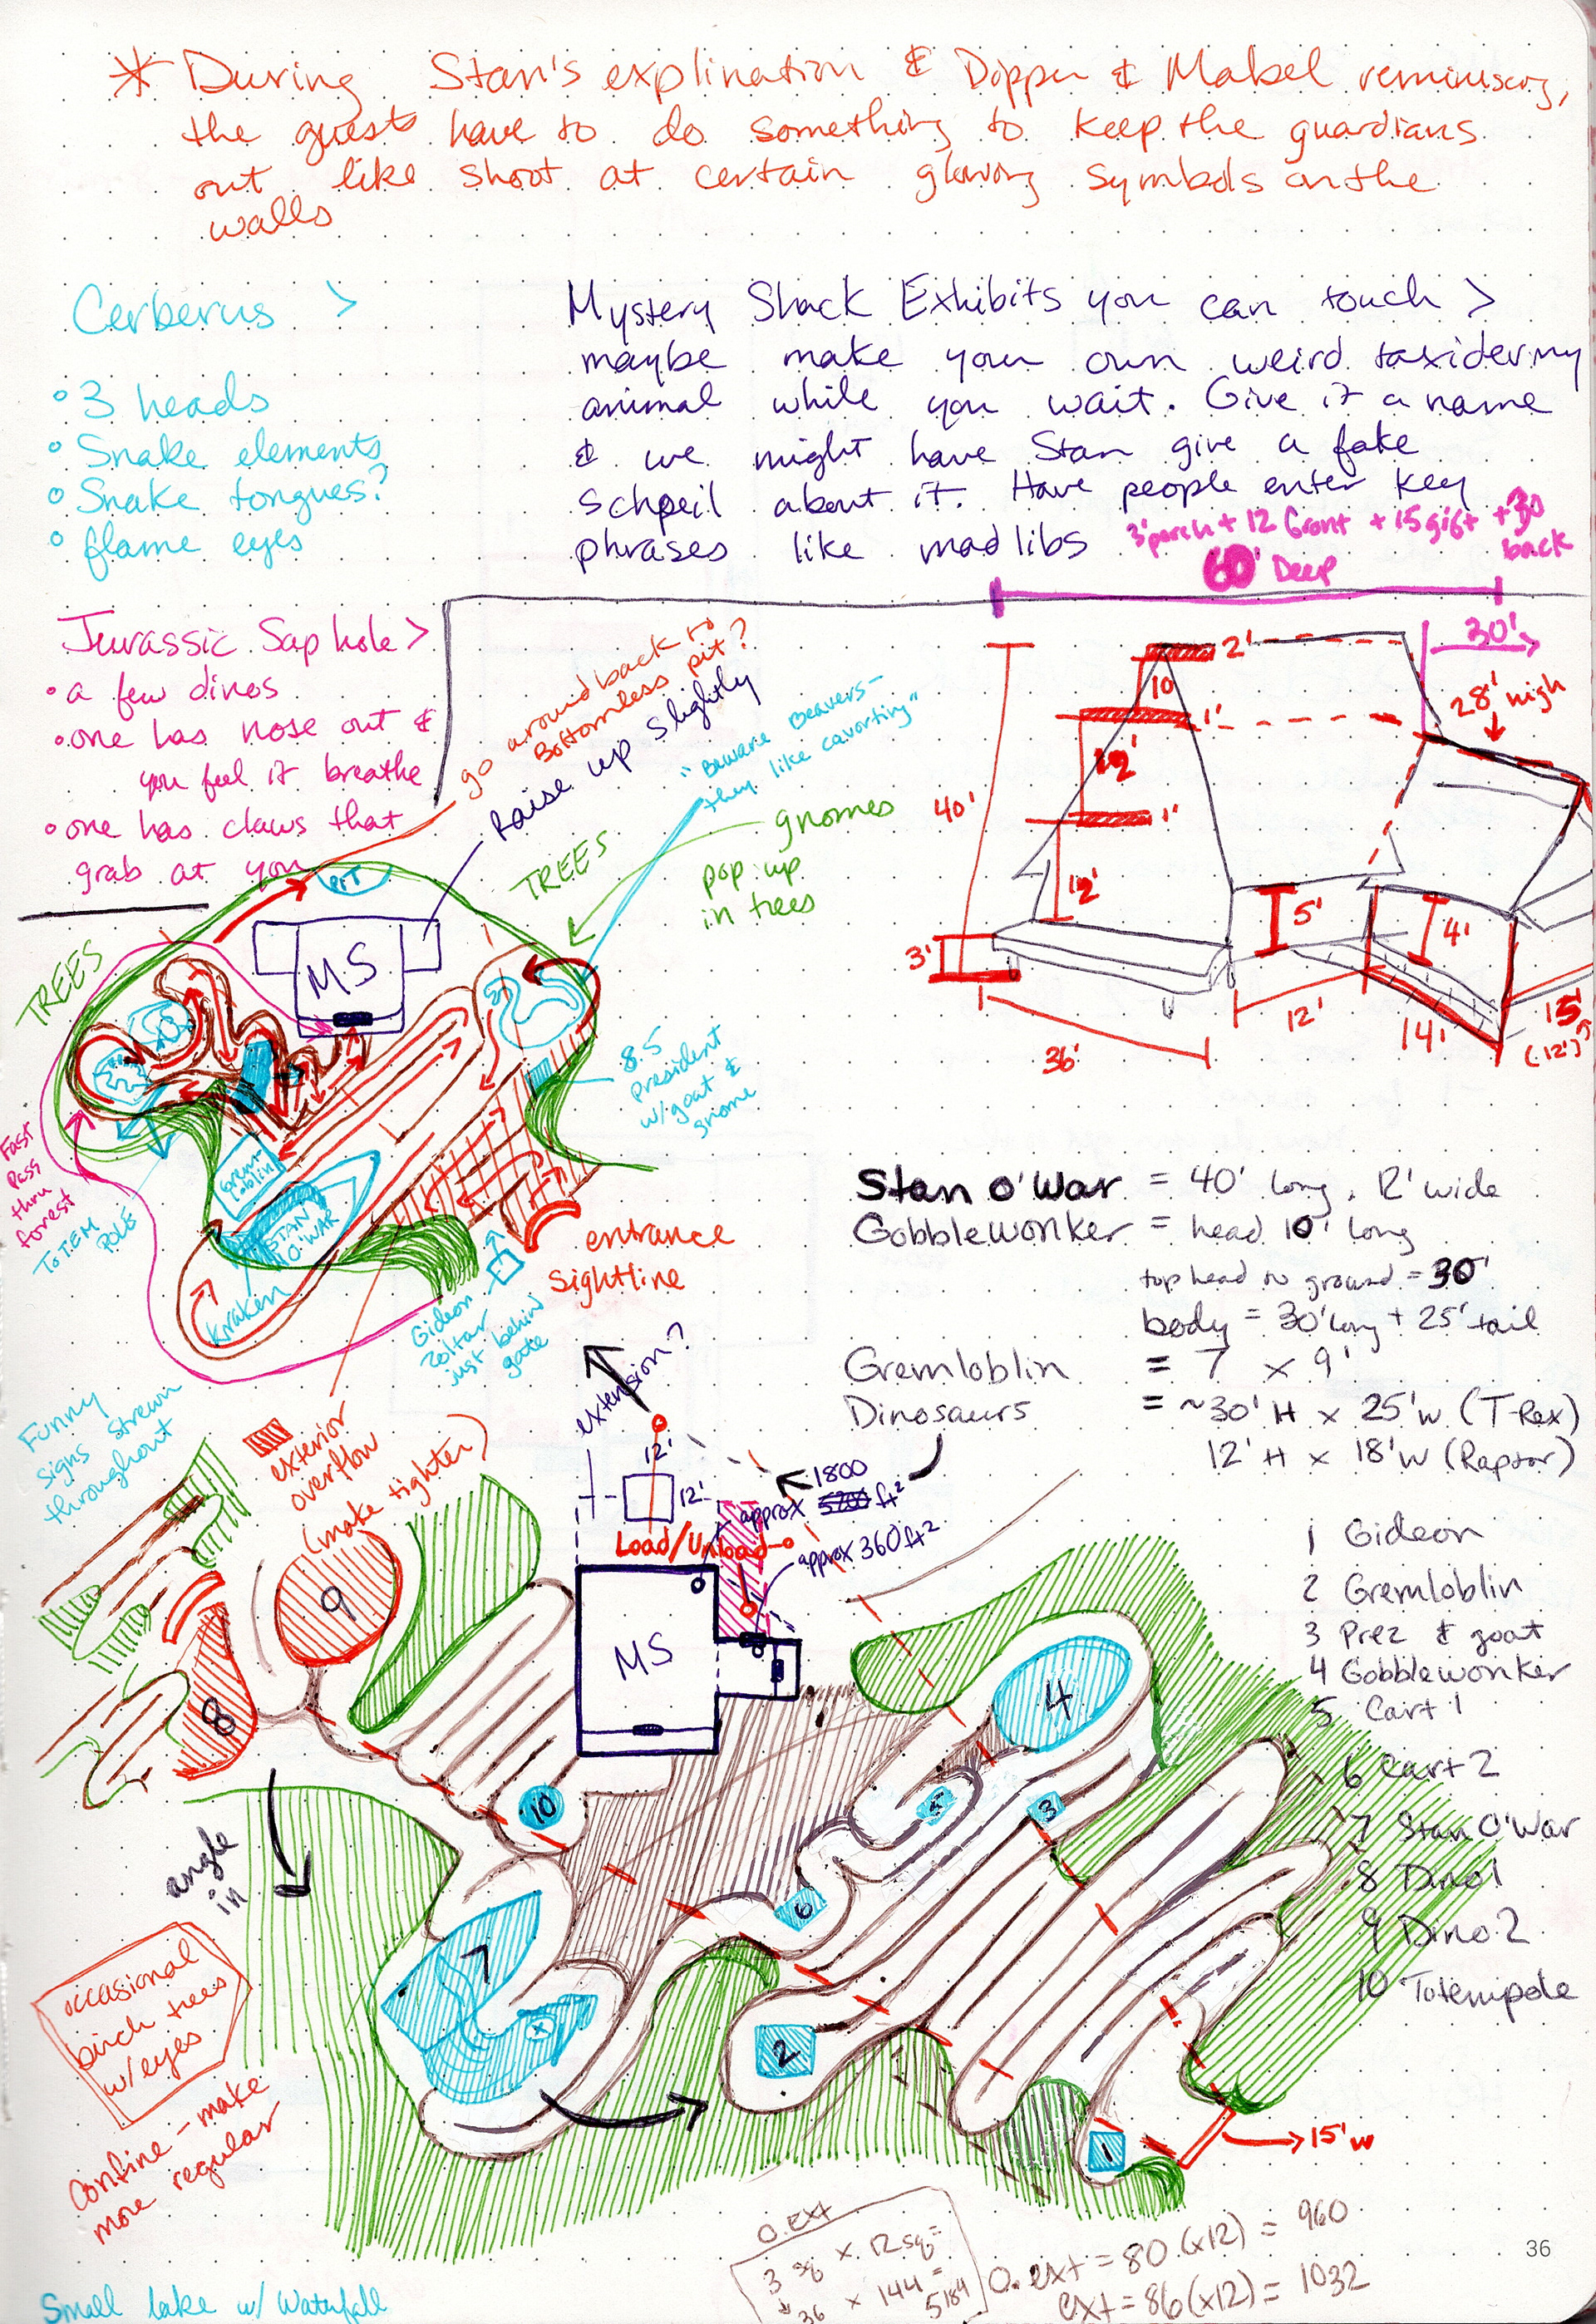 * During Stan's explination & Dipper & Mabel reminiscing,
the guests have to do something to keep the guardians
out like shoot at certain glowing symbols on the
walls
Cerberus >
° 3 heads
° Snake elements
° Snake tongues?
° flame eyes
Mystery Shack Exhibits you can touch >
maybe make your own weird taxidermy
animal while you wait. Give it a name
& we might have Stan give a fake
schpeil about it. Have people enter key
phrases like madlibs
3' porch + 12 front + 15 gift + 30
back
60' Deep
Jurassic Sap hole >
• a few dinos
• one has nose out &
you feel it breathe
• one has claws that
grab at you
go around back to
Bottomless pit?
Raise up slightly
"Beware Beavers-
they like cavorting"
gnomes
pop up
in trees
TREES
TREES
PIT
MS
8.5
president
w/goat &
gnome
Fast
Pass
thru
forest
TOTEM
POLE
Grem-
loblin
STAN
O'WAR
Kraken
entrance
sightline
Gideon
Zoltar
just behind
gate
30'
28' high
2'
10
1'
12'
1'
40'
12'
3'
5'
4'
36'
12'
14'
15'
(12')
Stan O'War = 40' long, 12' wide
Gobblewonker = head 10' long
top head to ground = 30'
body = 30' long + 25' tail
Gremloblin = 7 x 9'
Dinosaurs = ~30' H x 25' W (T-Rex)
12' H x 18' W (Raptor)
Funny
signs strewn
throughout
exterior
overflow
(make tighter)
extension?
12'
12'
Load/Unload
1800
approx 5200 ft²
approx 360 ft²
MS
9
8
10
4
5
3
6
7
2
1
x
angle
in
occasional
birch trees
w/eyes
Confine - make
more regular
1 Gideon
2 Gremloblin
3 Prez & goat
4 Gobblewonker
5 Cart 1
6 Cart 2
7 Stan O'War
8 Dino 1
9 Dino 2
10 Totempole
15' W
O. ext
3 sq x 12 sq =
36 x 144 =
5184
O. ext = 80 (x12) = 960
ext = 86 (x12) = 1032
Small lake w/ Waterfall
36